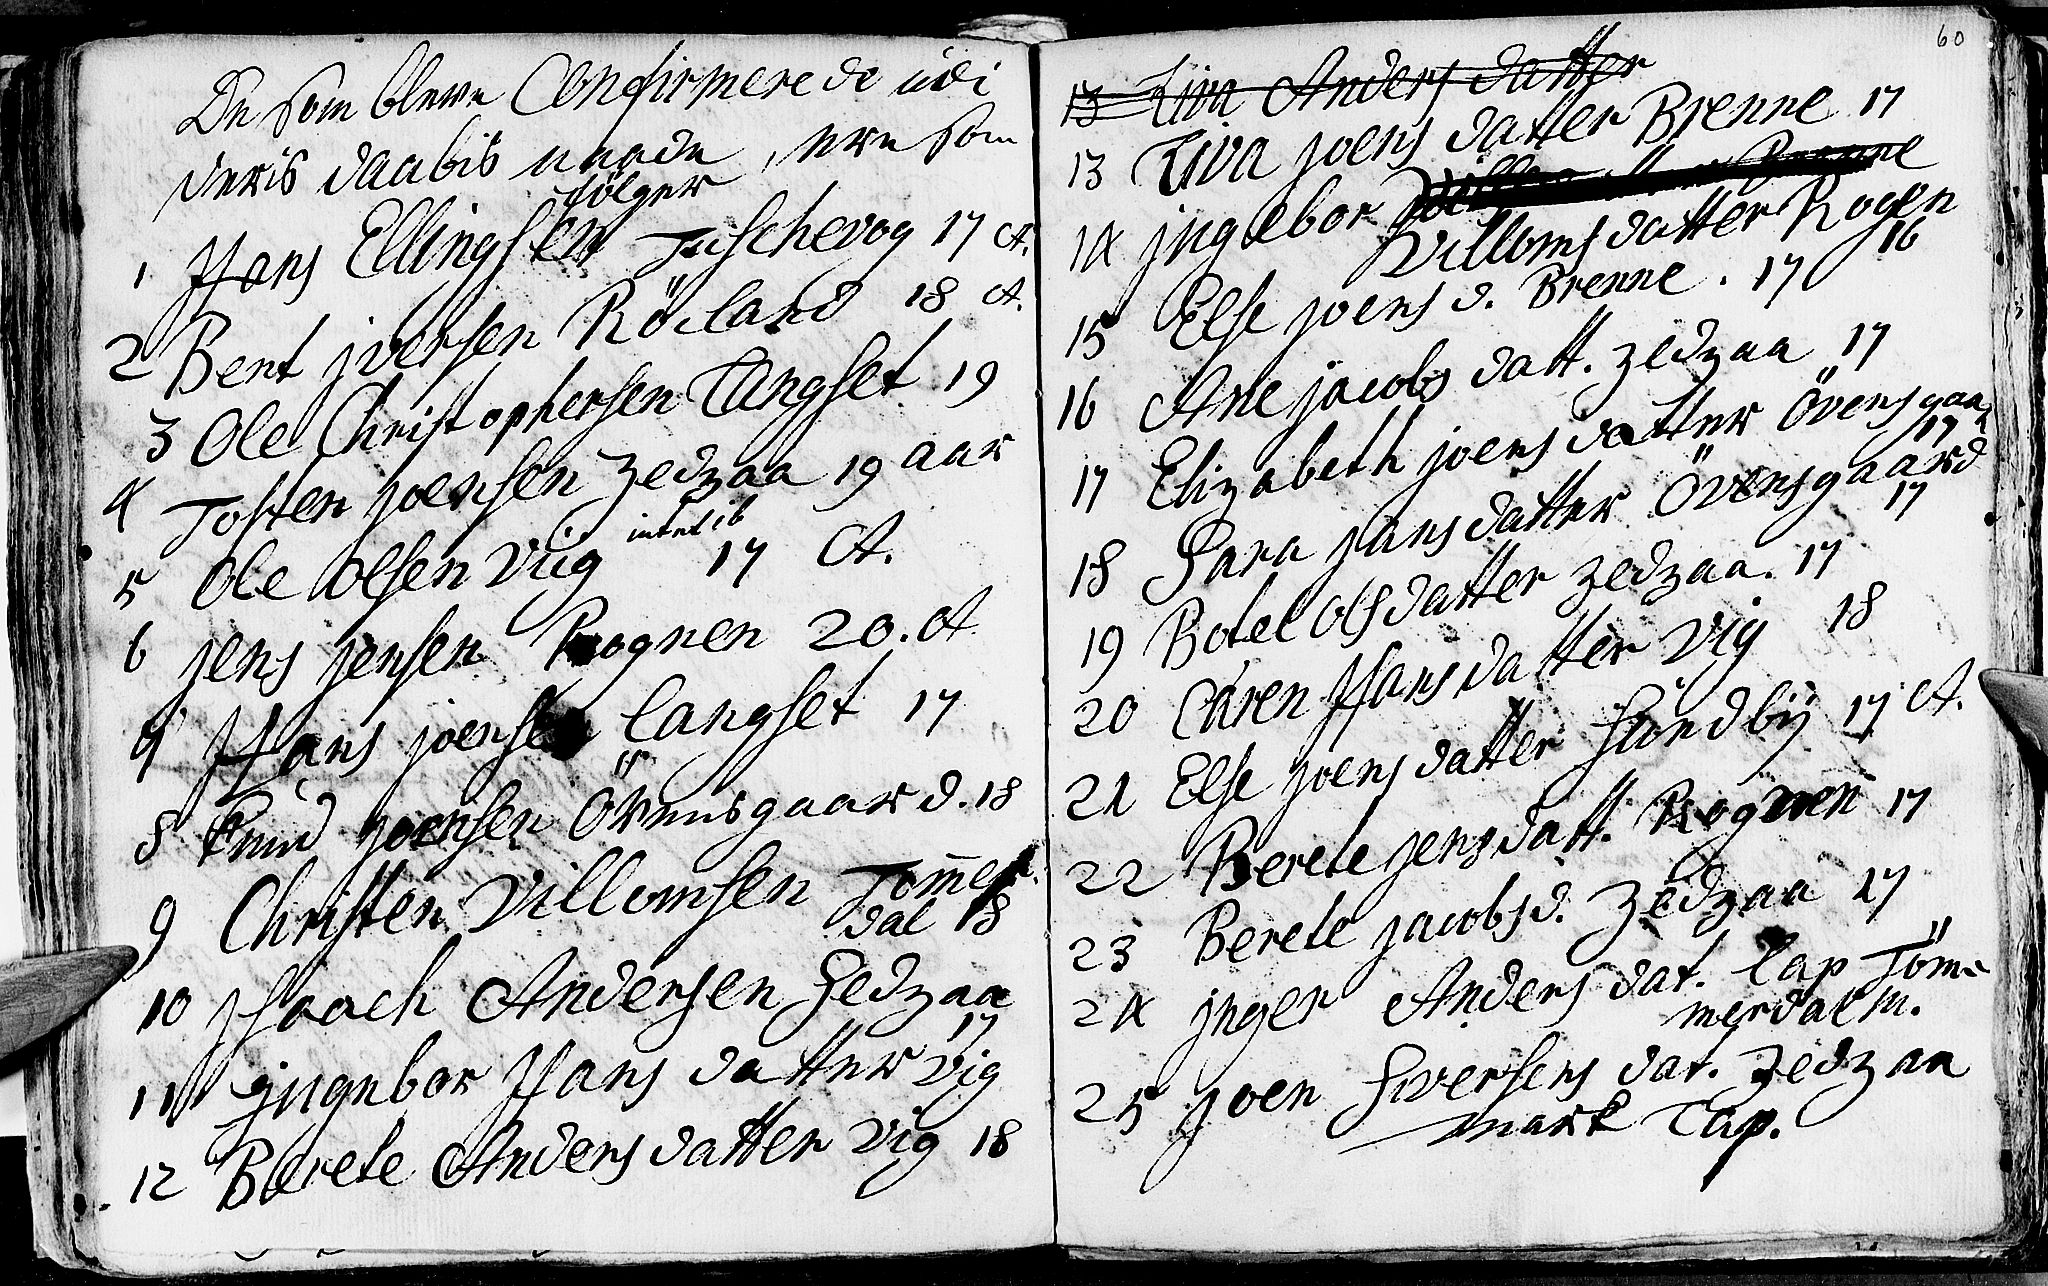 De som bleve Confirmerede udi
deris daabis naade, ere som
følger
1 Hans Ellingsen Tuschevog 17 A.
2 Bent jversen Röiland 18 A.
3 Ole Christophersen Langset 19
4 Tosten joensen Zedzaa 19 aar
5 Ole Olsen Viig 17 A.
6 jens jensen Rognen 20. A
7 Hans joensen Langset 17
8 Knud joensen Övensgaard. 18
9 Christen Villomsen Tom̄er
dal 18
10 jsaach Andersen Sedzaa
17
11 jngebor Hans datter Vig
12 Berete Anders datter Vig 18
60
13 Liva Anders datter
13 Liva joens datter Brenne 17
14 jngebor
Villoms datter Rogen
16
15 Else joens d. Brenne. 17
16 Ane jacobs datt. Zedzaa 17
17 Elizabeth joens datter Övensgaard
17
18 Sara jans datter Övensgaard
17
19 Botel Ols datter Zedzaa. 17
20 Caren Hans datter Vig 18
21 Else joens datter Sundbÿ 17 A.
22 Berete jens datt. Rognen 17
23 Berete jacobs d. Zedzaa 17
24 jnger Anders dat. Lap Töm-
merdal m.
25 joen Siversens dat. Zedzaa
mark Lap.